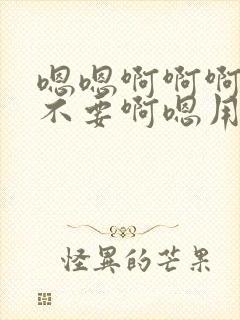 嗯嗯啊啊啊
不要啊嗯用
怪異的芒果